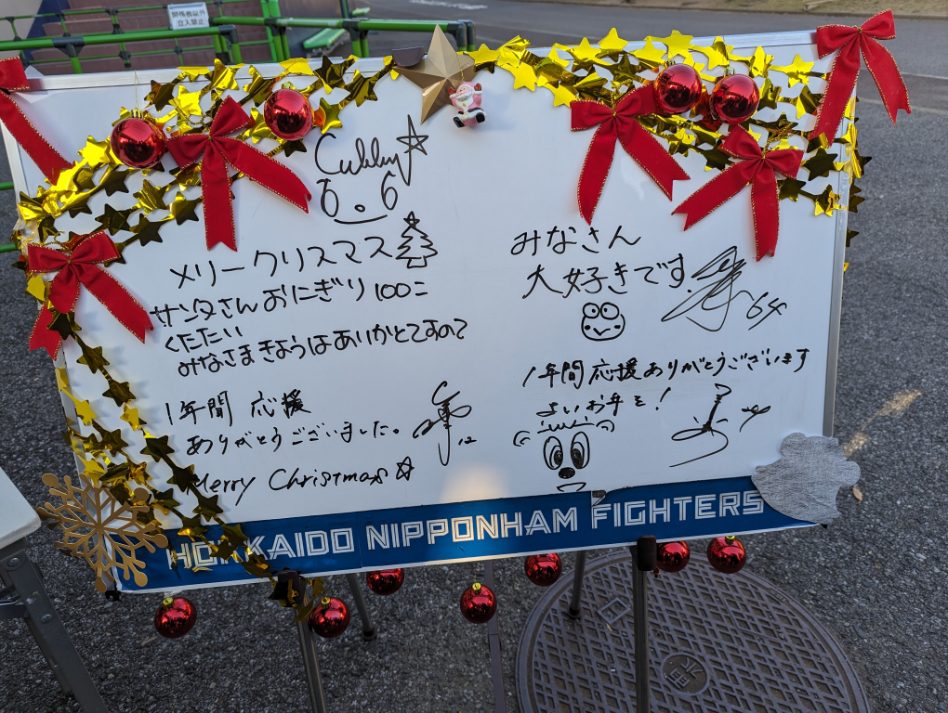 関係者以外
立入禁止
Cubby☆
メリークリスマス
サンタさんおにぎり100こ
くたたい
みなさまきょうはありかとてすので
1年間 応援
ありがとうございました。
12
Merry Christmas ☆
みなさん
大好きです
64
1年間応援ありがとうございます
よいお年を!
HOKKAIDO NIPPONHAM FIGHTERS